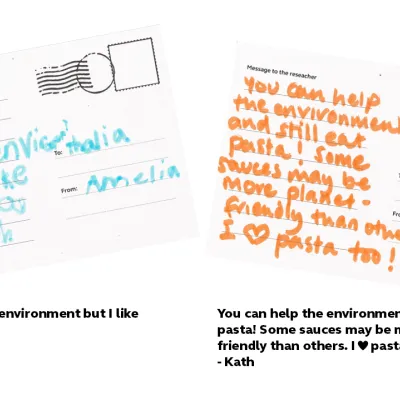 To: thalia
From: Amelia
environment but I like
Message to the reseacher
You can help
the environment
and still eat
pasta! Some
sauces may be
more planet-
friendly than othe
I ♥ pasta too!
You can help the environmen
pasta! Some sauces may be m
friendly than others. I ♥ past
- Kath